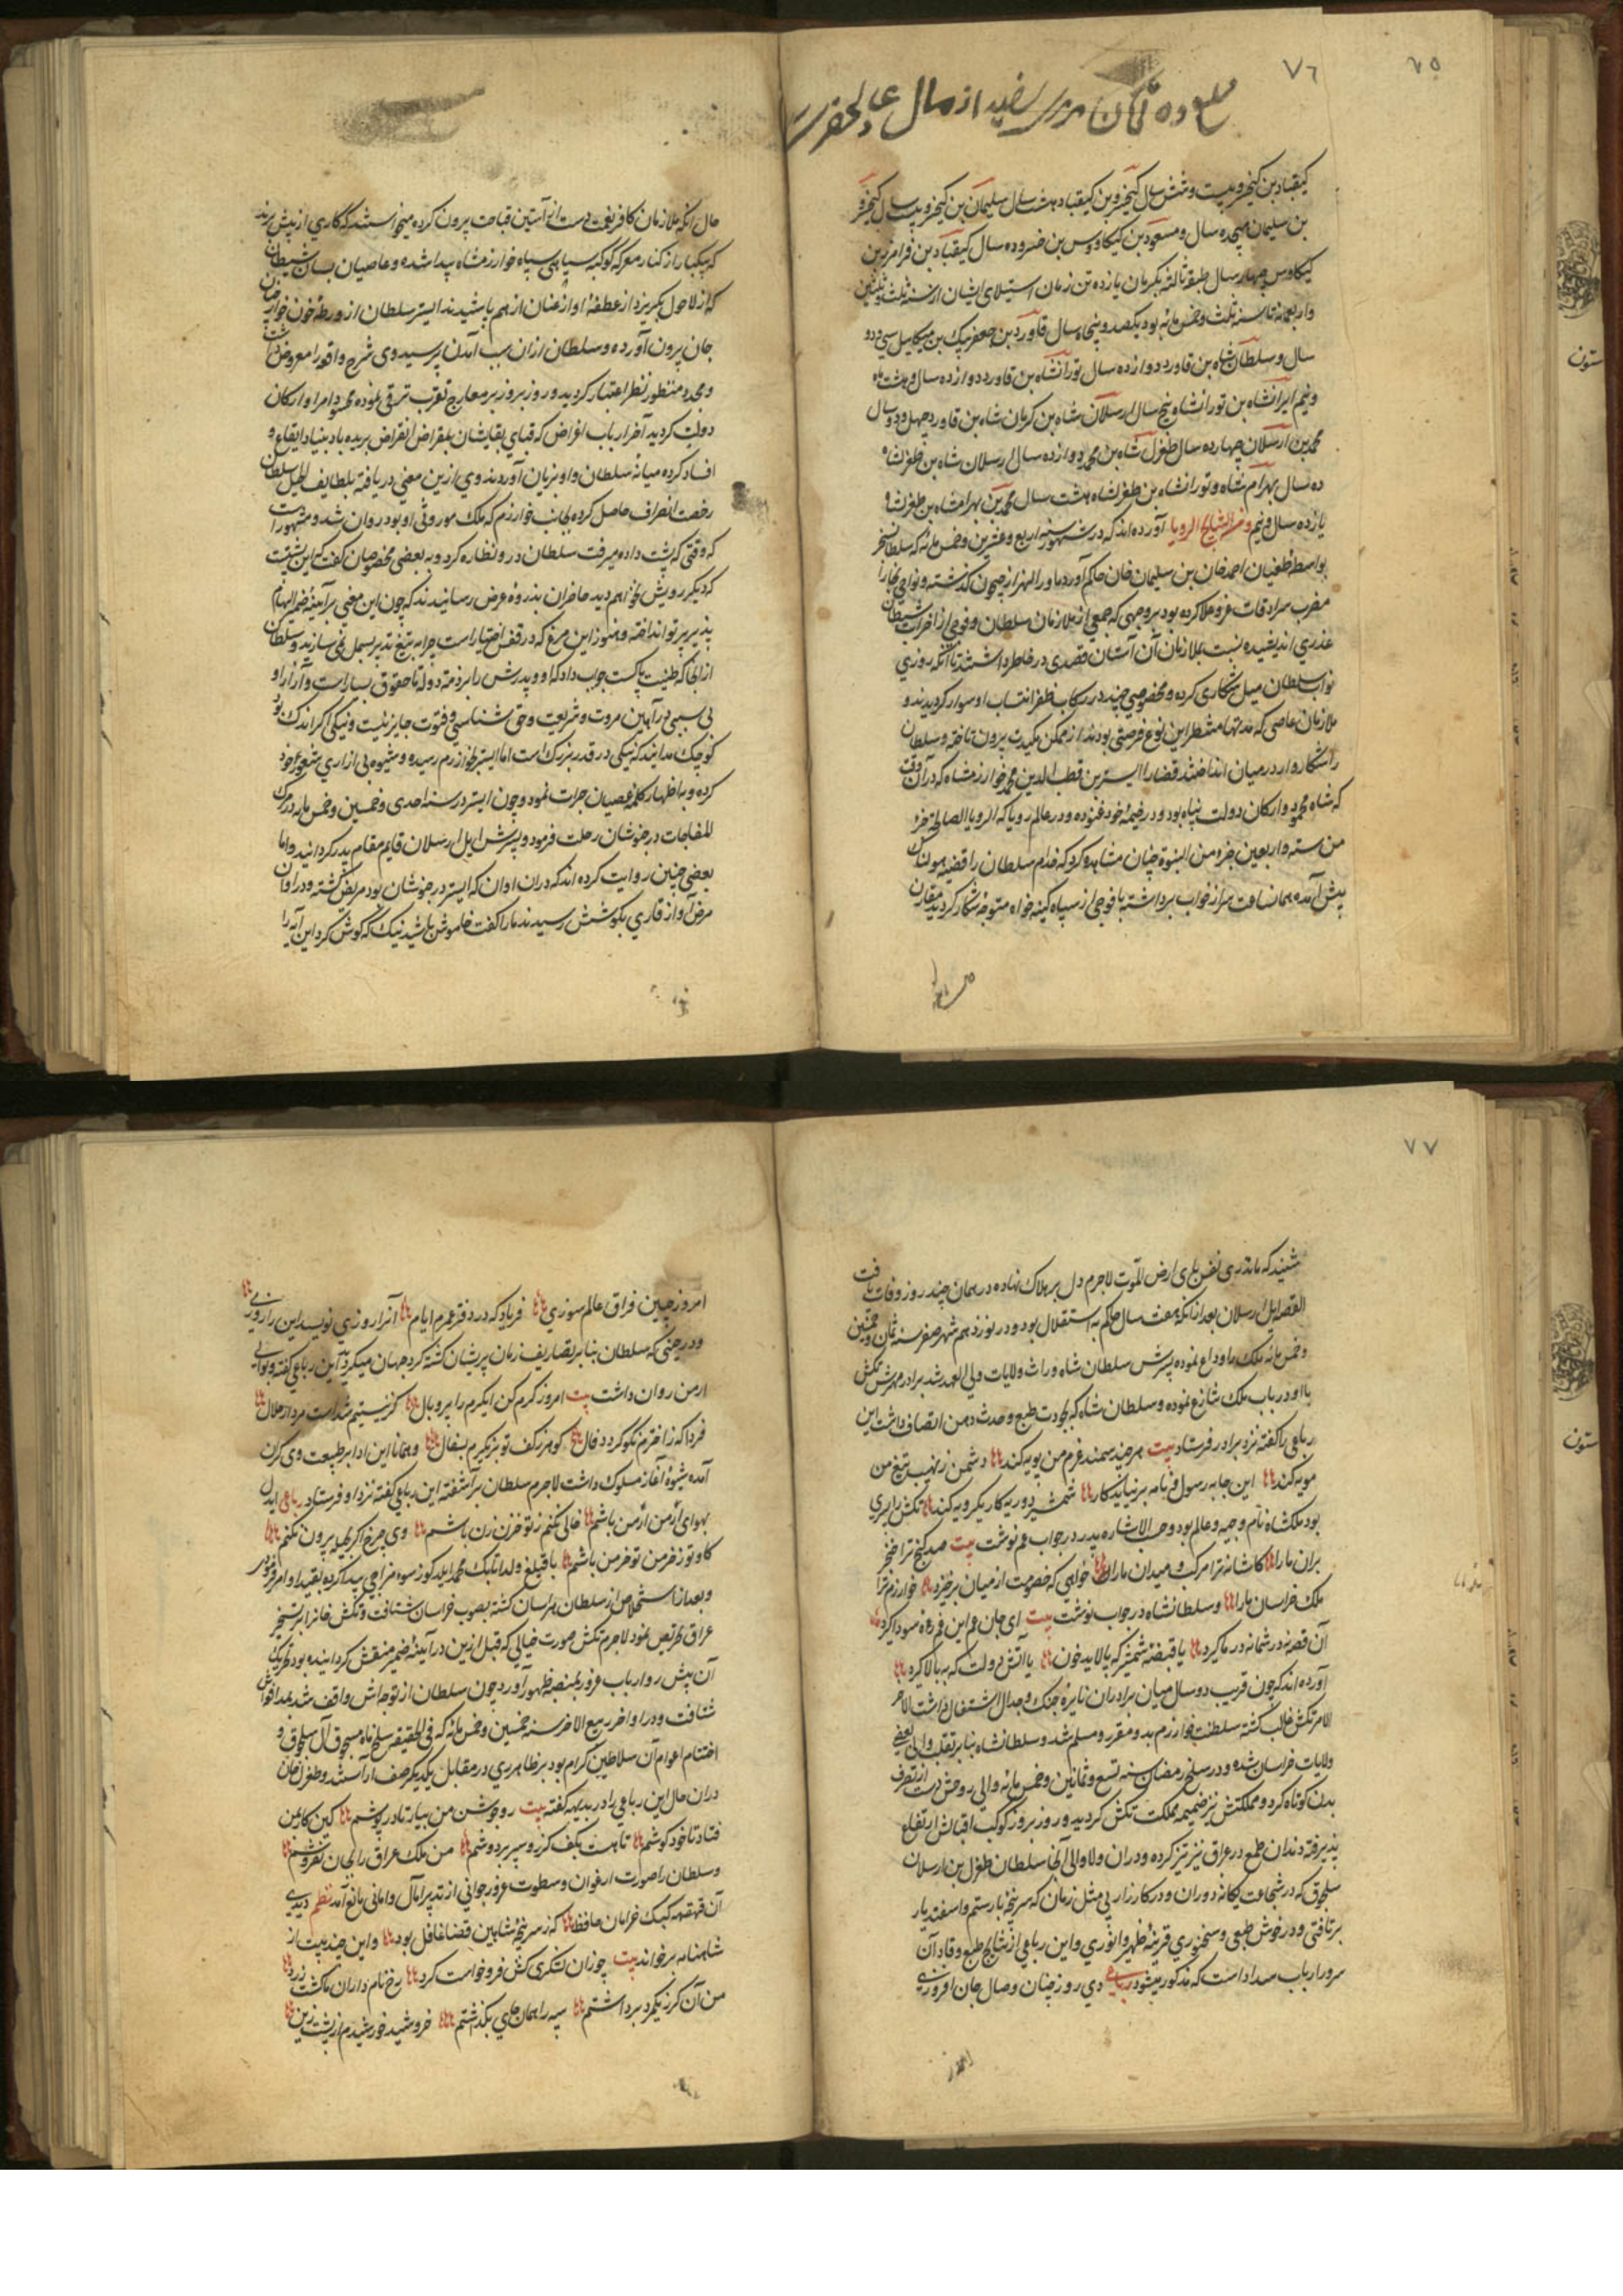 ٧٦
٧٥
ده تومان از مال عالیحضرت
کیقباد بن کیخسرو بیست و شش سال کیخسرو بن کیقباد هشت سال سلیمان بن کیخسرو بیست سال کیخسرو
بن سلیمان هیجده سال و مسعود بن کیکاووس بن خسرو ده سال کیقباد بن فرامرز بن
کیکاوس چهار سال طبقه ثالثه بکرمان یازده تن زمان استیلای ایشان از سنه ثلث و ثلثین
واربعمائه تا سنه ثلث و خمس مائه بود یکصد و پنجاه سال قاورد بن جعفر بیک بن میکاییل سی و دو
سال و سلطان شاه بن قاورد دوازده سال تورانشاه بن قاورد دوازده سال و هشت ماه
و نیم ایرانشاه بن تورانشاه پنج سال ارسلان شاه بن کرمان شاه بن قاورد چهل و دو سال
محمد بن ارسلان چهارده سال طغرل شاه بن محمد دوازده سال ارسلان شاه بن طغرلشاه
ده سال بهرام شاه و تورانشاه بن طغرلشاه هشت سال محمد بن بهرامشاه بن طغرلشاه
یازده سال و نیم و من النتایج الرویا آورده اند که در شهور سنه اربع و عشرین و خمس مائه که سلطان سنجر
بواسطه طغیان احمد خان بن سلیمان خان حاکم آورد ماورالنهر از جیحون گذشته و نواحی بخارا
مضرب سرادقات عز و علا کرده بود بر وجهی که جمعی از ملازمان سلطان و فوجی از اخراب شیطان
غدری اندیشیده نسبت بملازمان آن آستان قصدی در خاطر داشتند تا آنکه روزی
نواب سلطان میل شکاری کرده و مخصوصی چند در رکاب ظفر انتساب او سوار کردیدند و
ملازمان عاصی که مدتها منتظر این نوع فرصتی بودند از ممکن مکیدت بیرون تاخته و سلطان
را شکاروار در میان انداختند قضا را اتسز بن قطب الدین محمد خوارزمشاه که در آن وقت
که شاه محمود ارکان دولت پناه بود و در خیمه خود غنوده و در عالم رویا که الرویا الصالحة جزء
من سته و اربعین جزء من النبوة چنان مشاهده کرد که خدام سلطان را قضیه هولناک
پیش آمده همان ساعت سر از خواب برداشته با فوجی از سپاه کینه خواه متوجه شکار کردید مقارن
حال آنکه ملازمان کافر نعمت دست از آستین قباحت بیرون کرده میخواستند که کاری از پیش برند
که بیکبار از کنار معرکه کوکبه سپاهی سپاه خوارزمشاه پیدا شده و عاصیان بسان شیطان
که از لاحول بگریزد از عطفه او از عنان از هم پاشیدند اتسز سلطان از ورطه خون خوار
جان بیرون آورده و سلطان از ان سبب آمدن پرسید وی شرح واقعه را معروض داشت
و بمجدد منظور نظر اعتبار کردید و روز بروز بر معارج تقرب ترقی نموده محسود امرا و ارکان
دولت کردید آخر ارباب اغراض که قبای بقایشان بمقراض انقراض بریده باد بنیاد ایقاع و
افساد کرده میانه سلطان و او بزیان آوردند وی ازین معنی دریافته بلطایف الحیل سلطان
رخصت انصراف حاصل کرده بجانب خوارزم که ملک موروثی او بود روان شد و مشهور است
که وقتی که پشت داده میرفت سلطان در و نظاره کرد و به بعضی مخصوصان کفت که این پشتیست
که دیکر رویش نخواهم دید حاضران بذروه عرض رسانیدند که چون این معنی بر آیینه ضمیر الهام
پذیر پرتو انداخته و هنوز این مرغ که در قفس اختیار است چرا به تیغ تدبیر بسمل نمی سازند و سلطان
از انجا که طینت پاکست جواب داد که او و پدرش را بر ذمه دوله ما حقوق بسیار است و آزار او
بی سببی در آیین مروت و شریعت و حق شناسی و فتوت جایز نیست و نیکی اگر اندک بود
کوچک مدانید که نیکی در قدر بزرک است اما اتسز بخوارزم رسیده و شیوه بی ازاری شعار خود
کرده و به اظهار کلمه عصیان جرات نمود و چون اتسز در سنه احدی و خمسین و خمس مایه در مرک
المفاجات در خوشان رحلت فرمود و پسرش ایل ارسلان قایم مقام پدر کردانید و اما
بعضی چنین روایت کرده اند که دران اوان که اتسز در خوشان بود مریض کشته و در اوان
مرض آواز قاری بگوشش رسید ندما را کفت خاموش باشید نیک که کوش کرد این آیه را
٧٧
شنید که ما تدری نفس بای ارض تموت لاجرم دل بر هلاک نهاده در همان چند روز وفات یافت
القصه ایل ارسلان بعد از آنکه هفت سال حکم به استقلال بود و در نوزدهم شهر صفر سنه ثمان و خمسین
و خمس مائه ملک را وداع نموده پسرش سلطان شاه وراث ولایات و ولی العهد شد برادر مهترش تکش
با او در باب ملک تنازع نموده و سلطان شاه که بجودت طبع و حدت ذهن اتصاف داشت این
رباعی را کفته نزد برادر فرستاد بیت هر چند سمند عزم من پویه کند دشمن ز نهیب تیغ من
مویه کند این جا به رسول و نامه بر نیاید کار شمشیر دو رویه کار یکرویه کند تکش را پسری
بود ملکشاه نام وجیه و عالم بود و حسب الاشاره پدر در جواب عم نوشت بیت صد کنج ترا خنجر
بران ما را کاشانه ترا مرکب و میدان ما را خواهی که خصومت از میان برخیزد خوارزم ترا
ملک خراسان ما را و سلطانشاه در جواب نوشت بیت ای جان عم این غم ره سودا گیرد
آن قصه نه در شما نه در ما گیرد یا قبضه شمشیر که پالاید خون یا آتش دولت که به بالا گیرد
آورده اند که چون قریب دو سال میان برادران نایره جنک و جدال اشتغال داشت لاجر
الامر تکش غالب کشته سلطنت خوارزم بدو مقرر و مسلم شد و سلطانشاه بنا بر تقلب والی بعضی
ولایات خراسان شده و در سلخ رمضان سنه تسع و ثمانین و خمس مائه والی روحش دست از تصرف
بدن کوتاه کرد و مملکتش نیز ضمیمه مملکت تکش کردید و روز بروز کوکب اقبالش ارتفاع
پذیرفته دندان طمع در عراق نیز تیز کرده و دران ولا والی آنجا سلطان طغرل بن ارسلان
سلجوق که در شجاعت یکانه دوران و در کارزار بی مثل زمان که سر پنجه با رستم و اسفندیار
بر تافتی و در خوش طبعی و سخنوری قرینه ظهیر و انوری و این رباعی از نتایج طبع وقاد آن
سرور ارباب سداد است که مذکور میشود رباعی دی روز چنان وصال جان افروزی
امروز چنین فراق عالم سوزی فریاد که در دفتر عمرم ایام آنرا روزی نویسد این را روزی
و در حینی که سلطان بنا بر تصاریف زمان پریشان کشته کرد جهان میکردید این رباعی کفته و بوالی
ارمن روان داشت بیت امروز کرم کن ایکرم را پر و بال کز نیستیم شد است مردار حلال
فردا که ز اخترم نکو کردد فال کوهر ز کف تو بر نکیرم بسفال و همانا این ادا بر طبیعت وی کران
آمده شیوه آغاز مسلوک داشت لاجرم سلطان بر آشفته این رباعی کفته نزد او فرستاد رباعی ایدل
بهوای ارمن ار من باشم خالی نکنم ز تو خزن زن باشم وی چرخ اگر بحیله بیرون نکنم
کاو تو ز خرمن تو خر من باشم با قتلغ ولد اتابک محمد ایلدکوز سوء مزاجی پیدا کرده بقید او امر فرمود
و بعد از استخلاص از سلطان هراسان کشته بصوب خراسان شتافت و تکش خانرا بر تسخیر
عراق تحریص نمود لاجرم تکش صورت خیالی که قبل ازین در آیینه ضمیر منقش کردانیده بود بتحریک
آن پیش رو ارباب غرور بمنصه ظهور آورد چون سلطان از توجه اش واقف شد بمدافعه اش
شتافت و در اواخر ربیع الاخر سنه خمسین و خمس مائه که فی الحقیقه سلخ ماه سنجوق آل سلجوق و
اختتام اعوام آن سلاطین کرام بود بر ظاهر ری در مقابل یکدیکر صف آراستند و طغرل خان
دران حال این رباعی را در بدیهه کفته بیت رو جوشن من بیار تا در پوشم کین کار من
فتاد تا خود کوشم تا هست بکف کرز و سپر بر دوشم من ملک عراق را بجان نفروشم
و سلطان را صورت ارغوان و سطوت غرور جوانی از تدبیر آمال و امانی مانع آمد نظم دیدی
آن قهقهه کبک خرامان حافظ که ز سر پنجه شاهین قضا غافل بود و این چند بیت از
شاهنامه بر خواند بیت چو زان لشکر کش فرو خاست کرد رخ نام داران ما کشت زرد
من آن کرز یکمرد برداشتم سپه را همان جای بگذاشتم خروشید خورشیدم از پشت زین
ستون
ستون